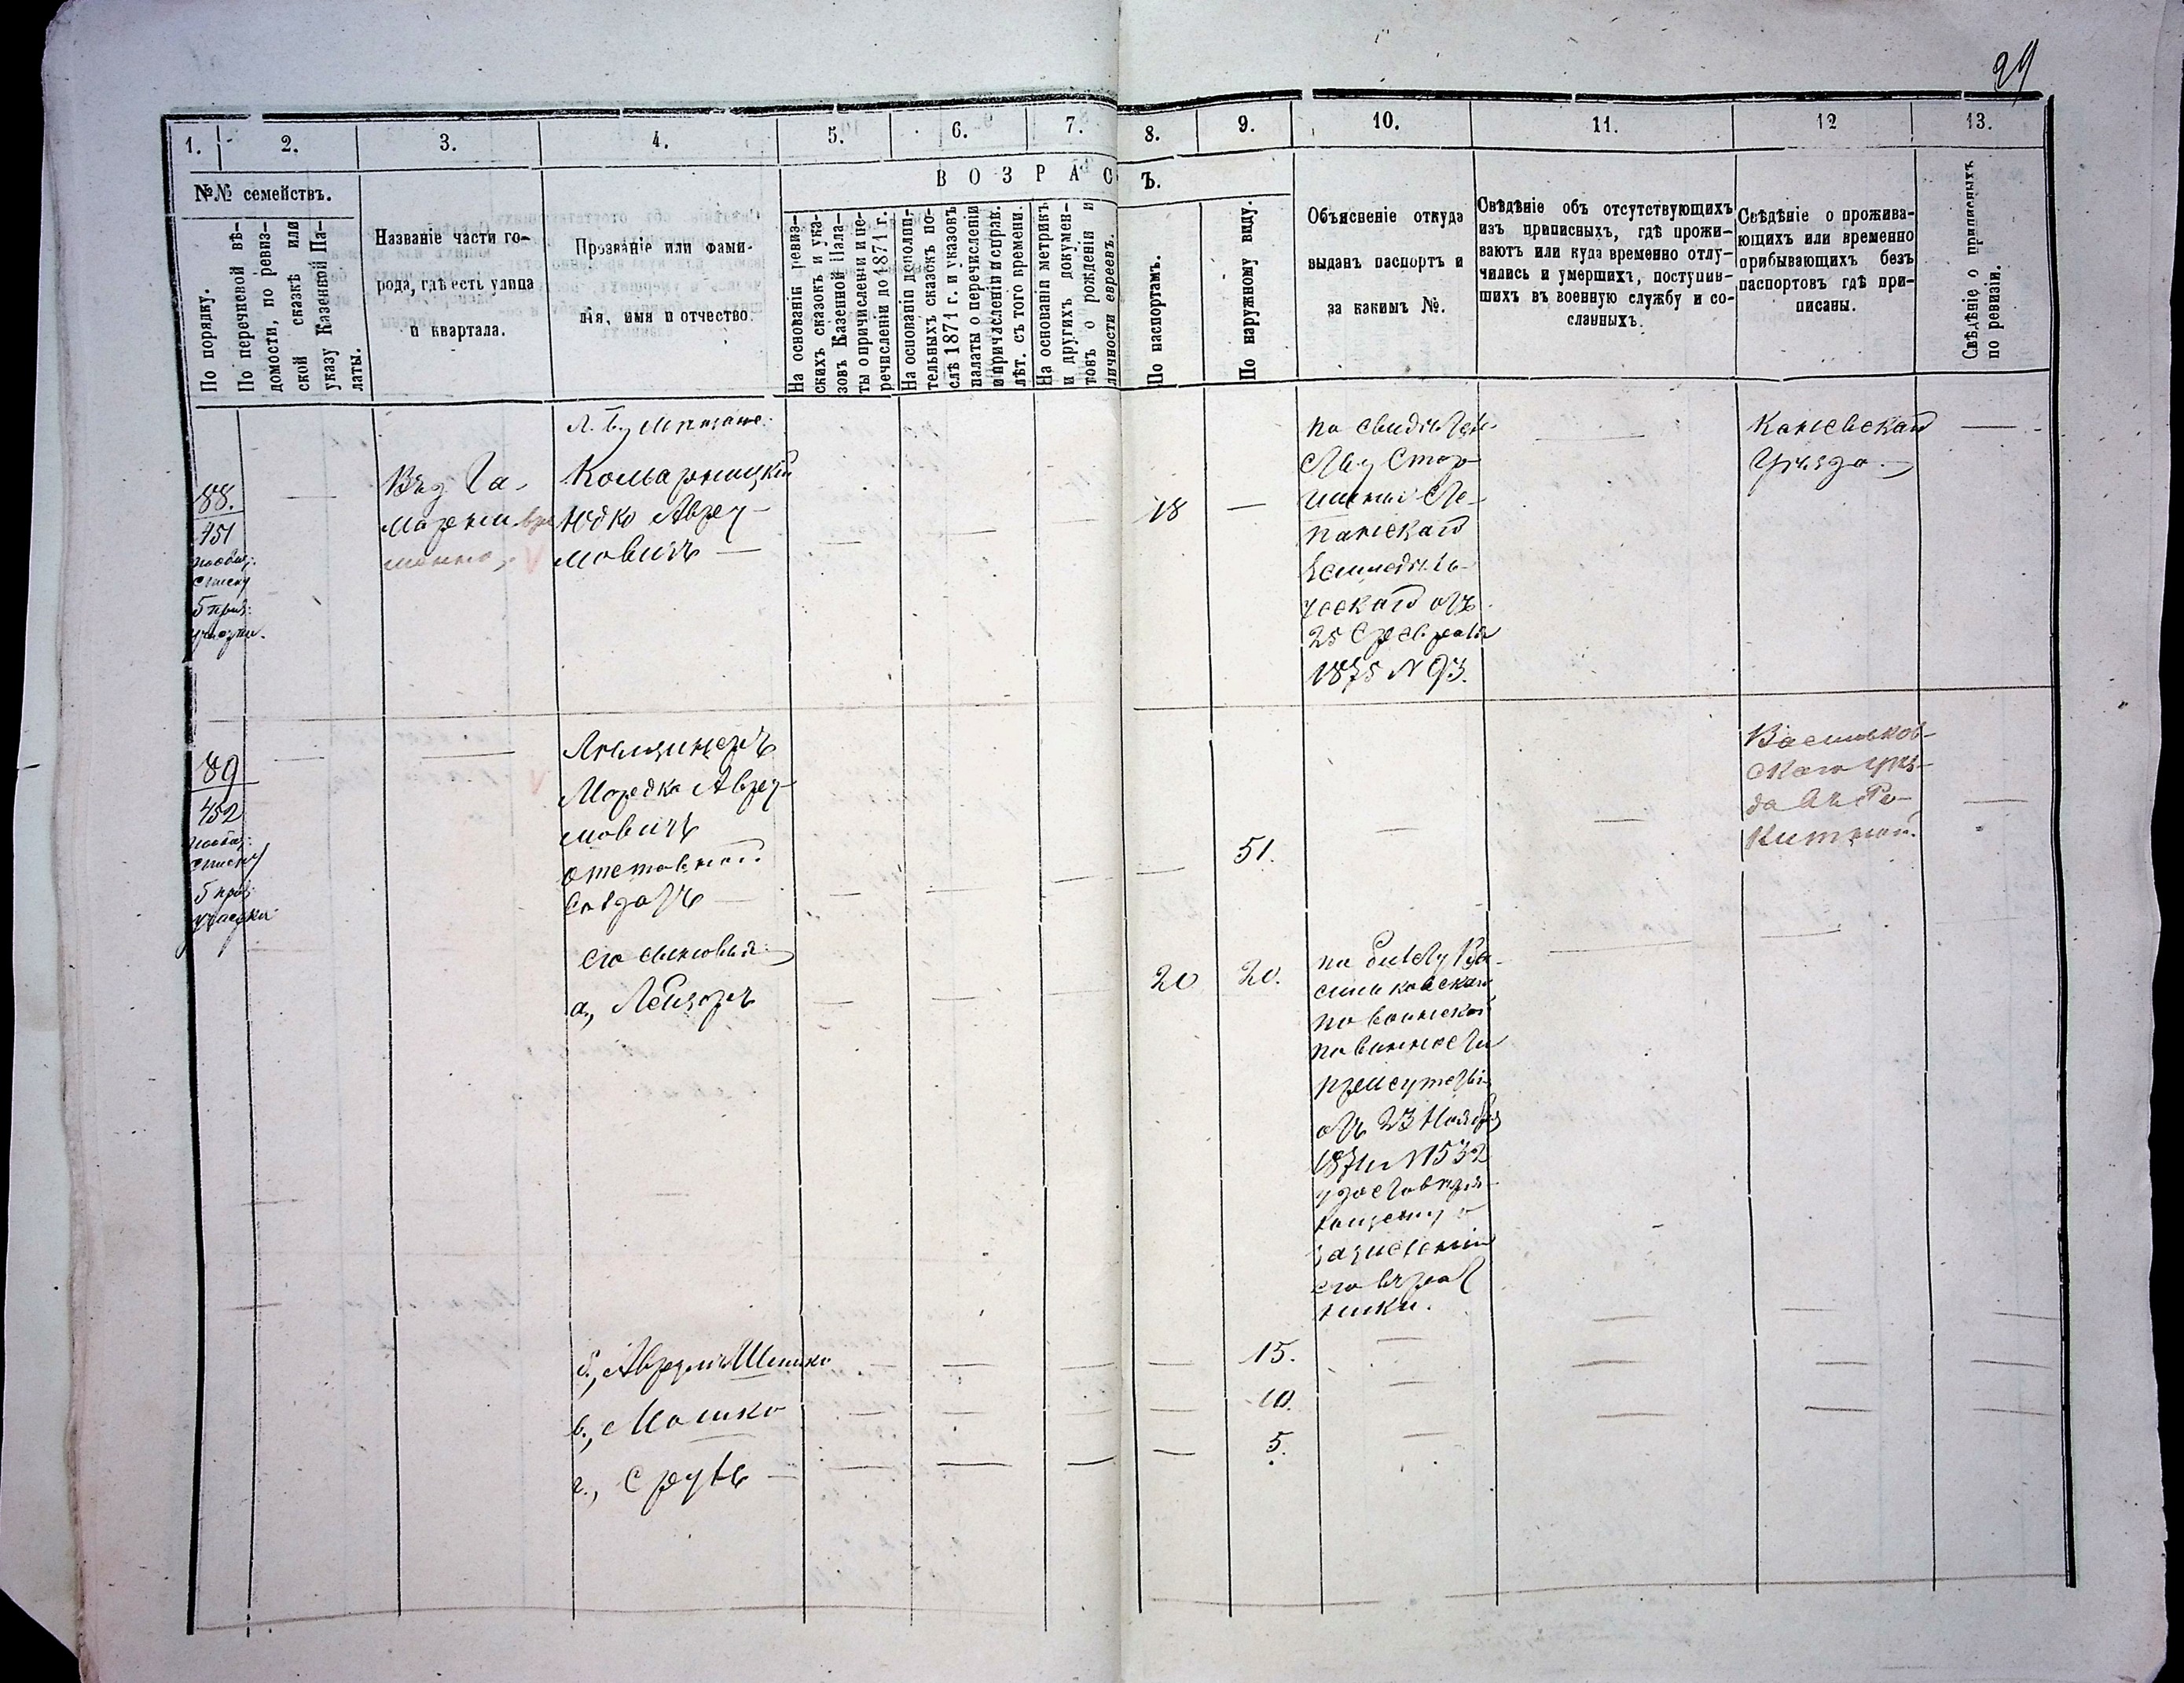 29
1.
2.
3.
4.
5.
6.
7.
8.
9.
10.
11.
12
13.
№№ семействъ.
ВОЗРАСТЪ.
По порядку.
По перечневой вѣ-
домости, по ревиз-
ской сказкѣ или
указу Казенной Па-
латы.
Названіе части го-
рода, гдѣ есть улица
и квартала.
Прозваніе или фами-
лія, имя и отчество.
На основаніи ревиз-
скихъ сказокъ и ука-
зовъ Казенной Пала-
ты о причисленіи и пе-
речисленіи до 1871 г.
На основаніи дополни-
тельныхъ сказокъ по-
слѣ 1871 г. и указовъ
палаты о перечисленіи
и причисленіи и справ.
лѣт. съ того времени.
На основаніи метрикъ
и другихъ докумен-
товъ о рожденіи и
личности евреевъ.
По паспортамъ.
По наружному виду.
Объясненіе откуда
выданъ паспортъ и
за какимъ №.
Свѣдѣніе объ отсутствующихъ
изъ приписныхъ, гдѣ прожи-
ваютъ или куда временно отлу-
чились и умершихъ, поступив-
шихъ въ военную службу и со-
сланныхъ.
Свѣдѣніе о прожива-
ющихъ или временно
прибывающихъ безъ
паспортовъ гдѣ при-
писаны.
Свѣдѣніе о приписныхъ
по ревизіи.
88.
451
списку
5 приз:
участка.
Комарницкій
Юдко Авру-
мовичъ —
18
—
по свидѣтель-
ству
отъ
25 Февраля
1875 N 93.
Каневскаго
Уѣзда.
89
452
списку
5 приз:
участка.
Мордка Авру-
мовичъ
отставной
солдатъ —
51.
Васильков-
скаго уѣз-
да
его сыновья:
а., Лейзоръ
20
20.
по билету Ва-
сильковскаго
по воинской
повинности
присутствія
отъ 23 Ноября
N 1532
удостовѣря-
ющему о
зачисленіи
его въ рат
ники.
б., Аврумъ Шимко
15.
в., Мошко
10.
г., Сруль —
5.